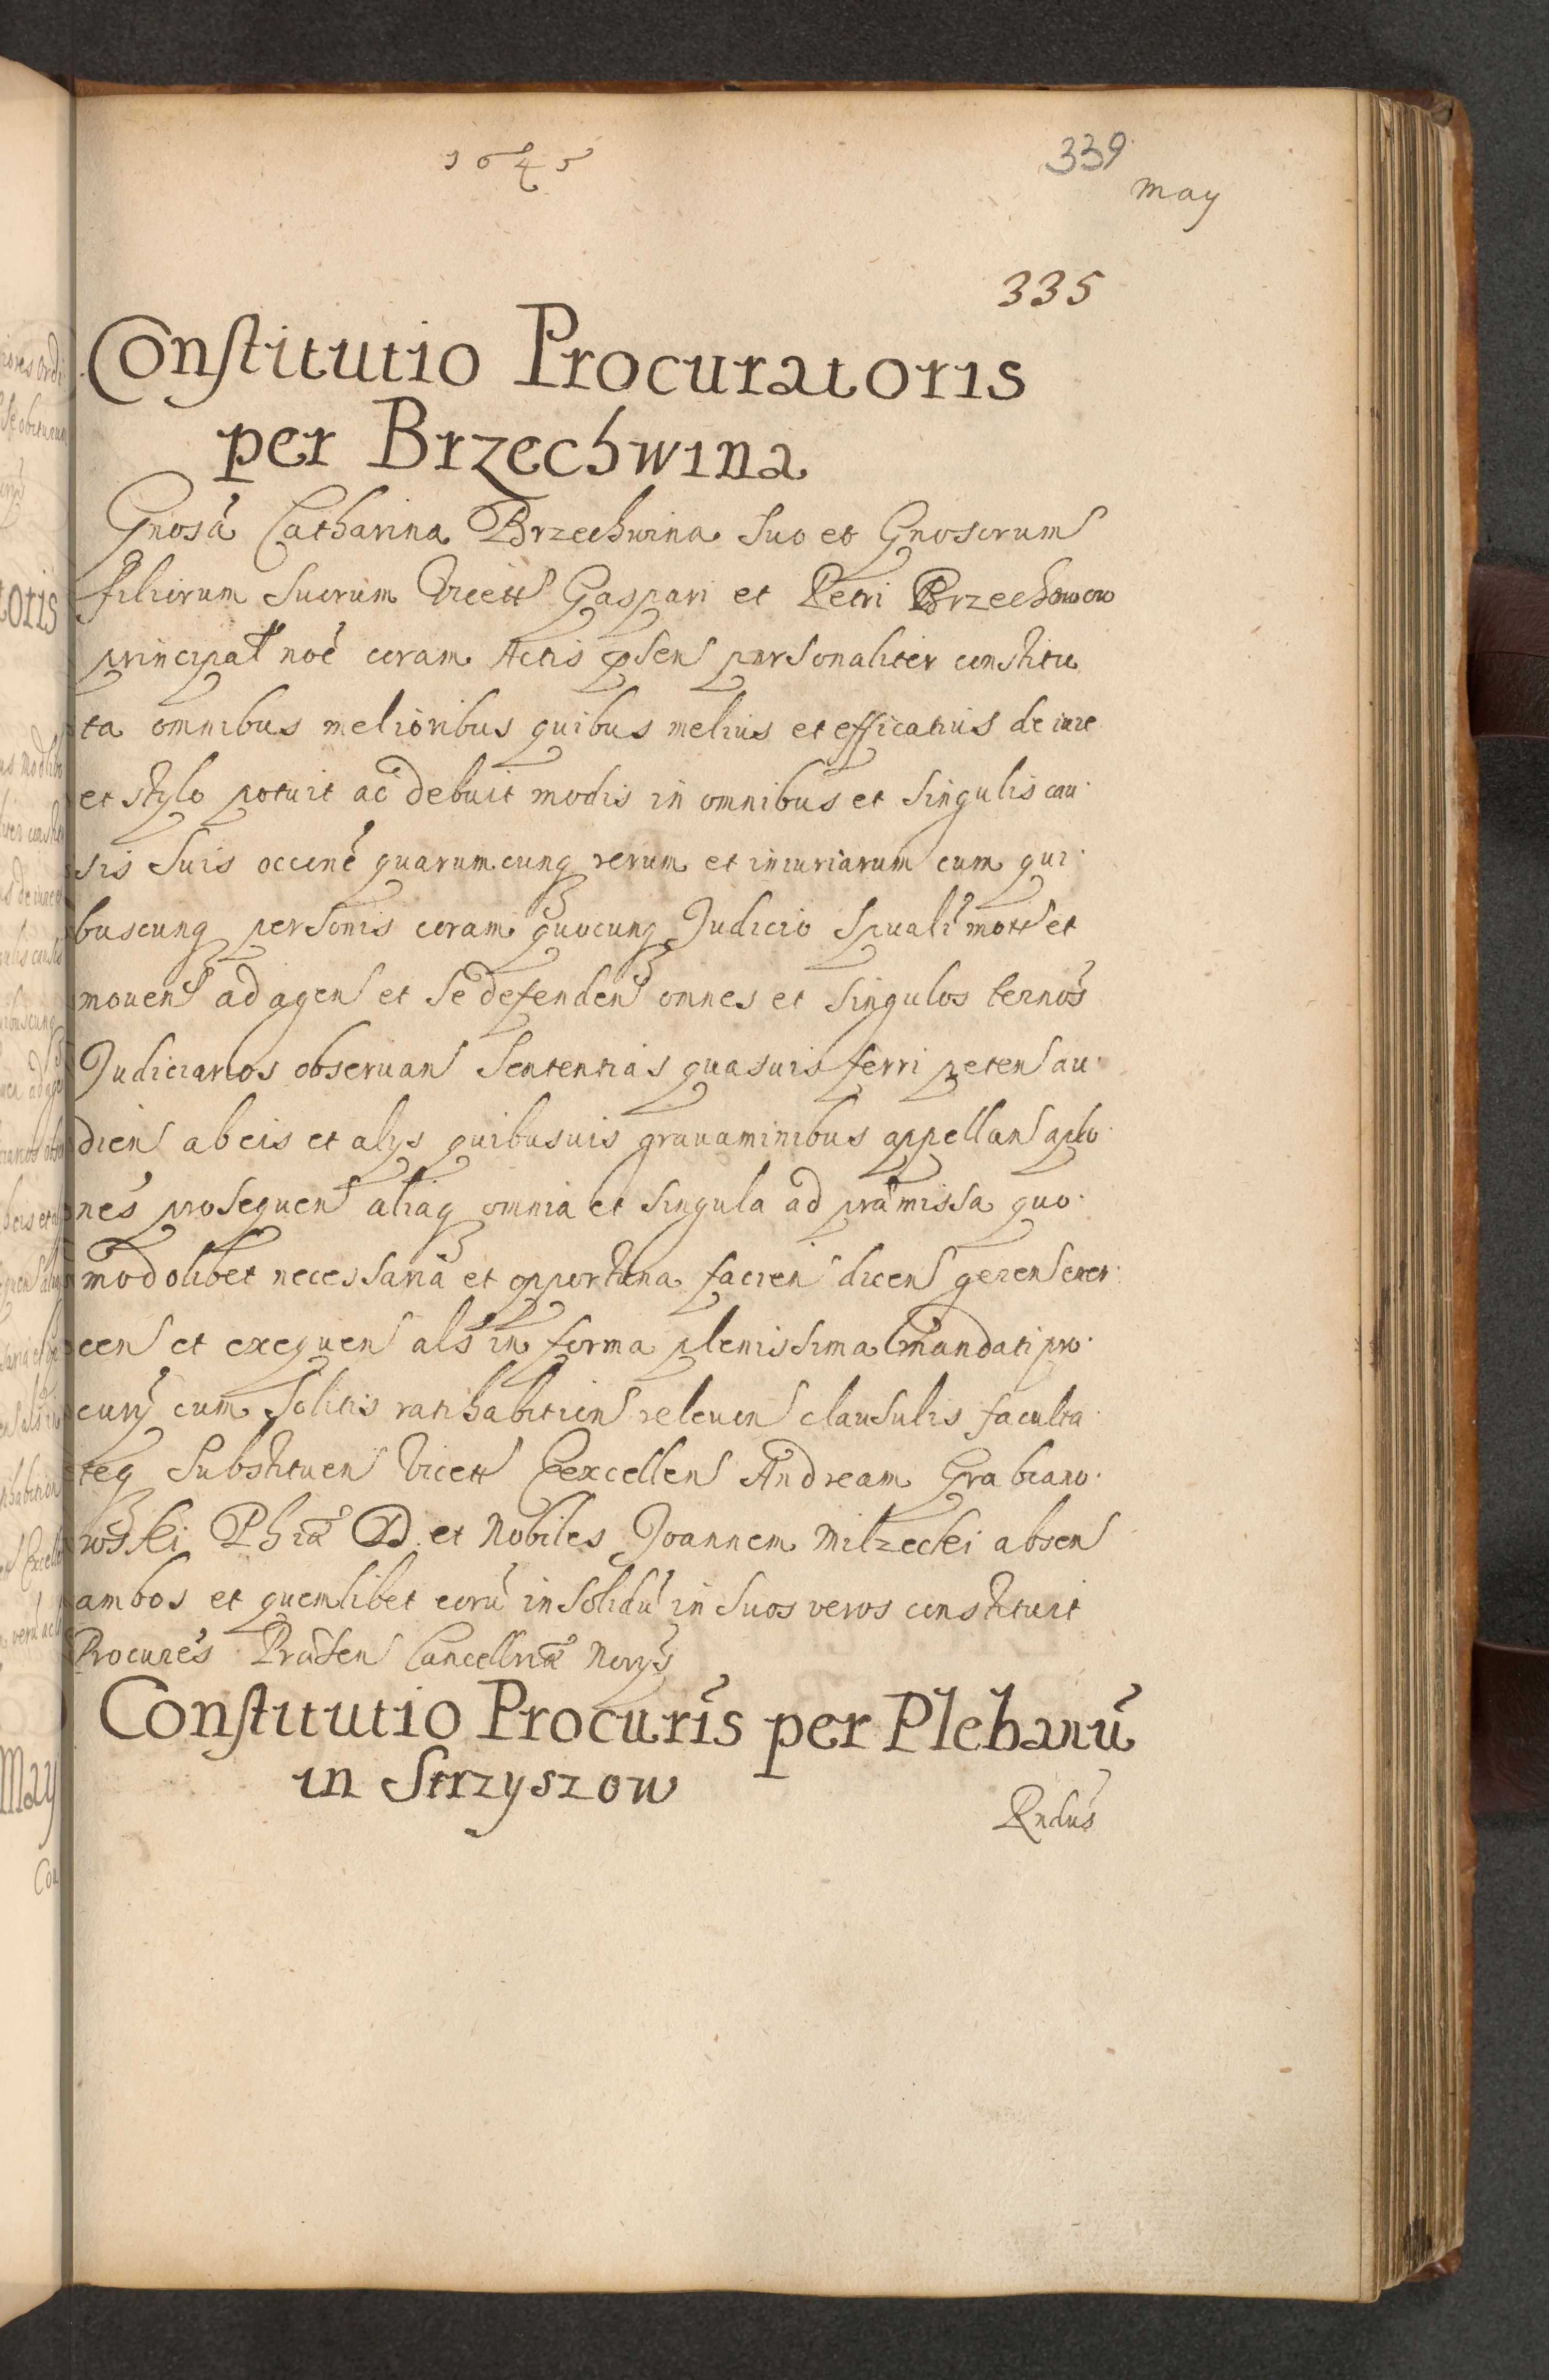 1645
339
May
335
Constitutio Procuratoris
per Brzechwina
Gnosã Catharina Brzechwina suo et Gnosorum
filiorum suorum vicett Gaspari et Petri Brzechwow
principal noẽ coram Actis psens personaliter constitu
ta omnibus melioribus quibus melius et efficatius de iure
et stylo potuit ac debuit modis in omnibus et singulis cau
sis suis occne quarumcunq rerum et iniuriarum cum qui
buscunq personis coram quocunq Judicio Spuali mott et
mouen ad agen et se defenden omnes et singulos ternos
Judiciarios obseruan sententias quasuis ferri peten au
dien ab eis et alijs quibusuis grauaminibus appellan aplo
nes prosequen aliaq omnia et singula ad præmissa quo
modolibet necessaria et opportuna facien dicen geren exer
cen et exequen als in forma plenissima mandati pro
curij cum solitis ratihabition releuen clausulis faculta
teq substituen vicett Excellen Andream Grabiano
wski Phiæ D. et Nobiles Joannem Milzecki absen
ambos et quemlibet eorũ in solidũ in suos veros constituit
Procures Præsen Cancellriæ Norijs
Constitutio Procuris per Plebanũ
in Strzyszow
Rndus